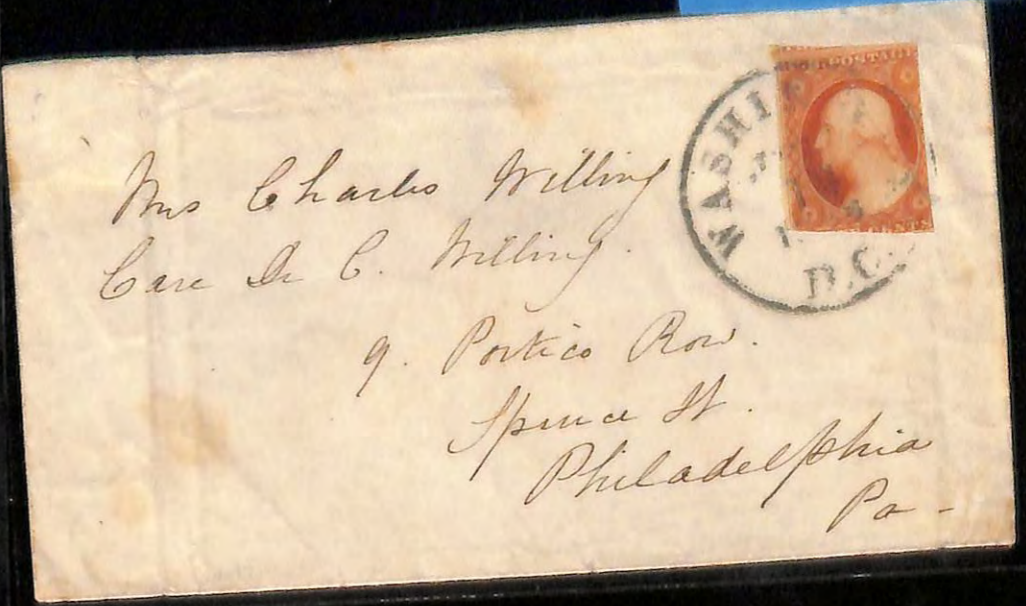 POSTAGE
CENTS
WASHI
D.C.
Mrs Charles Willing
Care Dr C. Willing.
9. Portico Row.
Spruce St.
Philadelphia
Pa -